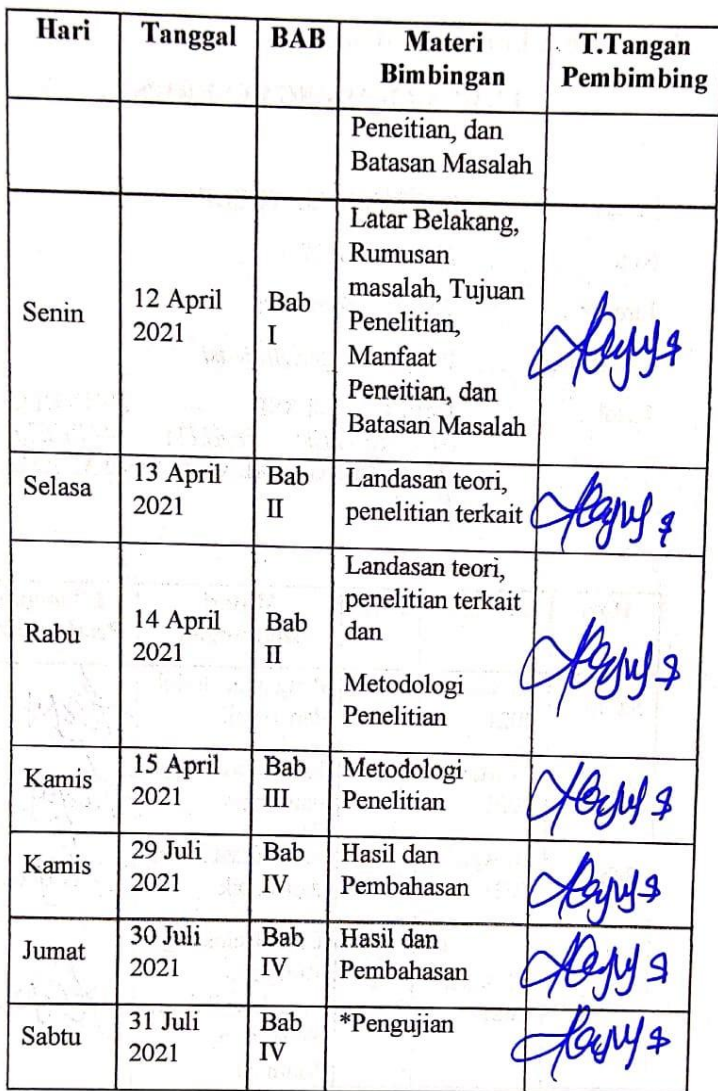 Hari Tanggal BAB Materi Bimbingan T.Tangan Pembimbing
Peneitian, dan
Batasan Masalah
Senin 12 April 2021 Bab I Latar Belakang,
Rumusan
masalah, Tujuan
Penelitian,
Manfaat
Peneitian, dan
Batasan Masalah
Selasa 13 April 2021 Bab II Landasan teori,
penelitian terkait
Rabu 14 April 2021 Bab II Landasan teori,
penelitian terkait
dan
Metodologi
Penelitian
Kamis 15 April 2021 Bab III Metodologi
Penelitian
Kamis 29 Juli 2021 Bab IV Hasil dan
Pembahasan
Jumat 30 Juli 2021 Bab IV Hasil dan
Pembahasan
Sabtu 31 Juli 2021 Bab IV *Pengujian